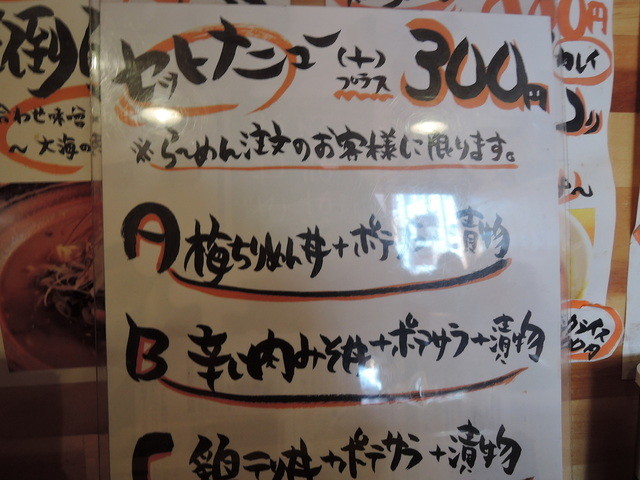 セットメニュー (+)プラス 300円
※らーめん注文のお客様に限ります。
A 梅ちりめん丼+ポテサラ+漬物
B 辛い肉みそ丼+ポテサラ+漬物
C 鶏テリ丼+ポテサラ+漬物
合わせ味噌
～大海の
カレイ